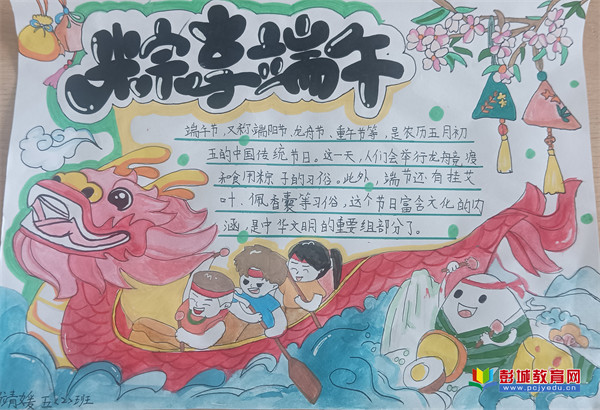 粽享端午
端午节,又称端阳节、龙舟节、重午节等,是农历五月初
五的中国传统节日。这一天,人们会举行龙舟竞渡
和食用粽子的习俗。此外,端节还有挂艾
叶、佩香囊等习俗,这个节日富含文化的内
涵,是中华文明的重要组部分了。
婧媛 五(2)班
彭城教育网
www.pcjyedu.cn